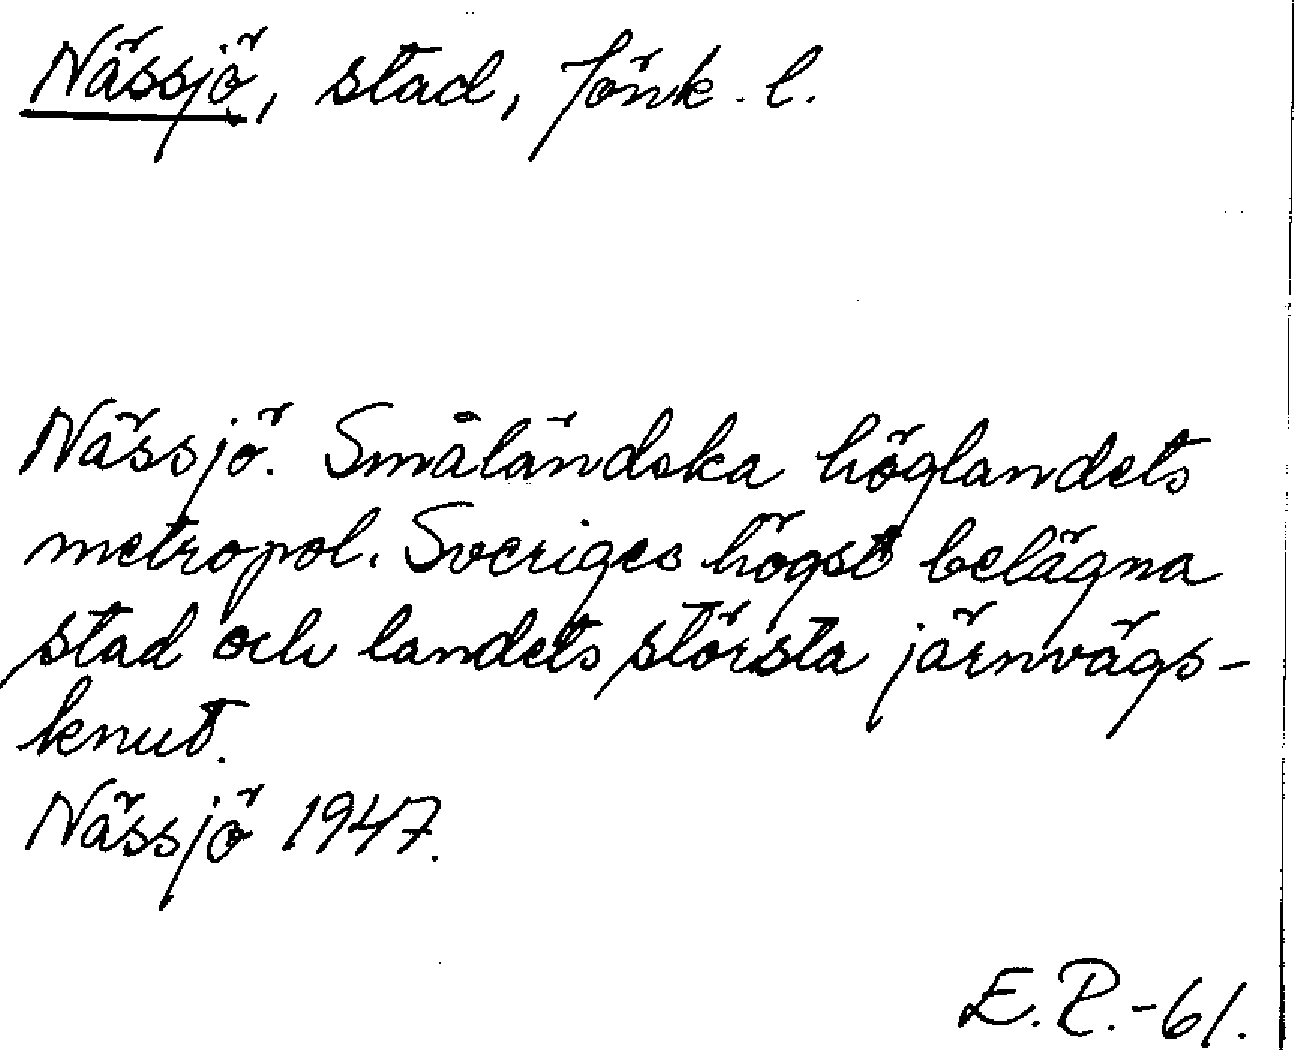 Nässjö, stad, Jönk. l.
Nässjö. Småländska höglandets
metropol. Sveriges högst belägna
stad och landets största järnvägs-
knut.
Nässjö 1947.
E.P.-61.